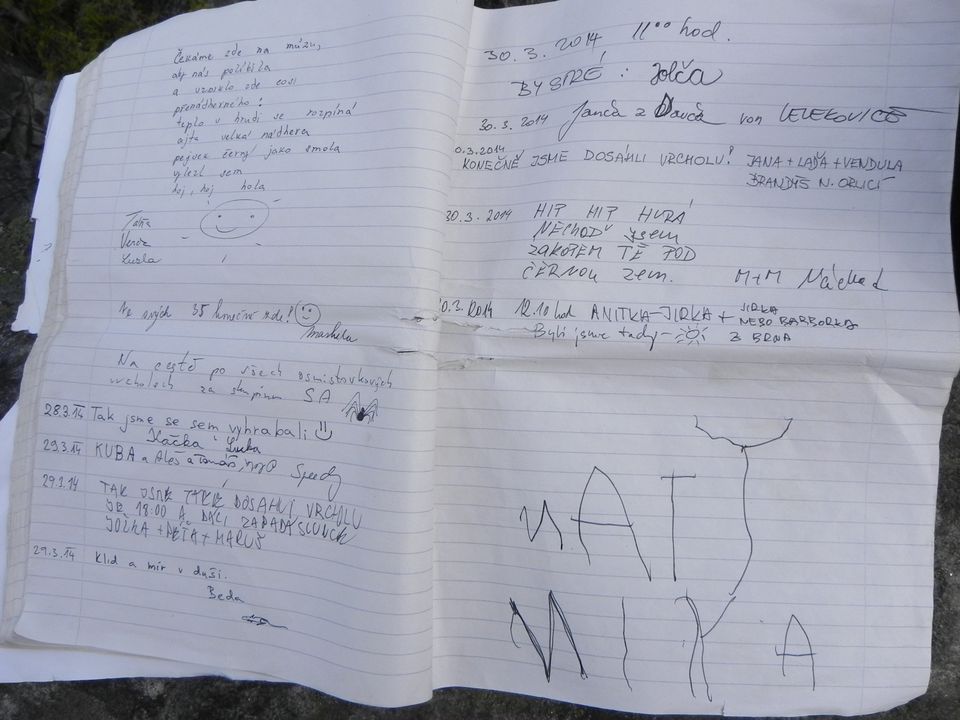 Čekáme zde na múzu,
aby nás políbila
a vzniklo zde cosi
přenádherného!
teplo v hrudi se rozpíná
ajta velká nádhera
pejsek černý jako smola
vylezl sem
hoj, hoj hola
Táňa
Verča
35 konečně zde!
Na cestě po všech osmistovkových
vrcholech za skupinu SA
28.3.14 Tak jsme se sem vyhrabali
Lucka
29.3.14 KUBA a Aleš a Tomáš, Speedy
29.3.14 TAK JSME TAKÉ DOSÁHLI VRCHOLU
JE 18:00 A DÁLI ZAPADÁ SLUNCE
JOŽKA + PÉŤA + MARUŠ
29.3.14 Klid a mír v duši.
Beda
30.3.2014 11⁰⁰ hod.
BYSTRÉ : Jolča
30.3.2014 Janča z von LELEKOVICE
0.3.2014
KONEČNĚ JSME DOSÁHLI VRCHOLU! JANA + LAĎA + VENDULA
BRANDÝS N. ORLICÍ
30.3.2014 HIP HIP HURÁ
NECHOĎ jsem
ZAKOPEM TĚ POD
ČERNOU zem. M+M Náchod
30.3.2014 12.10 hod ANITKA-JIRKA + JIRKA
NEBO BARBORKA
Byli jsme tady - Z BRNA
NATY
MIKA